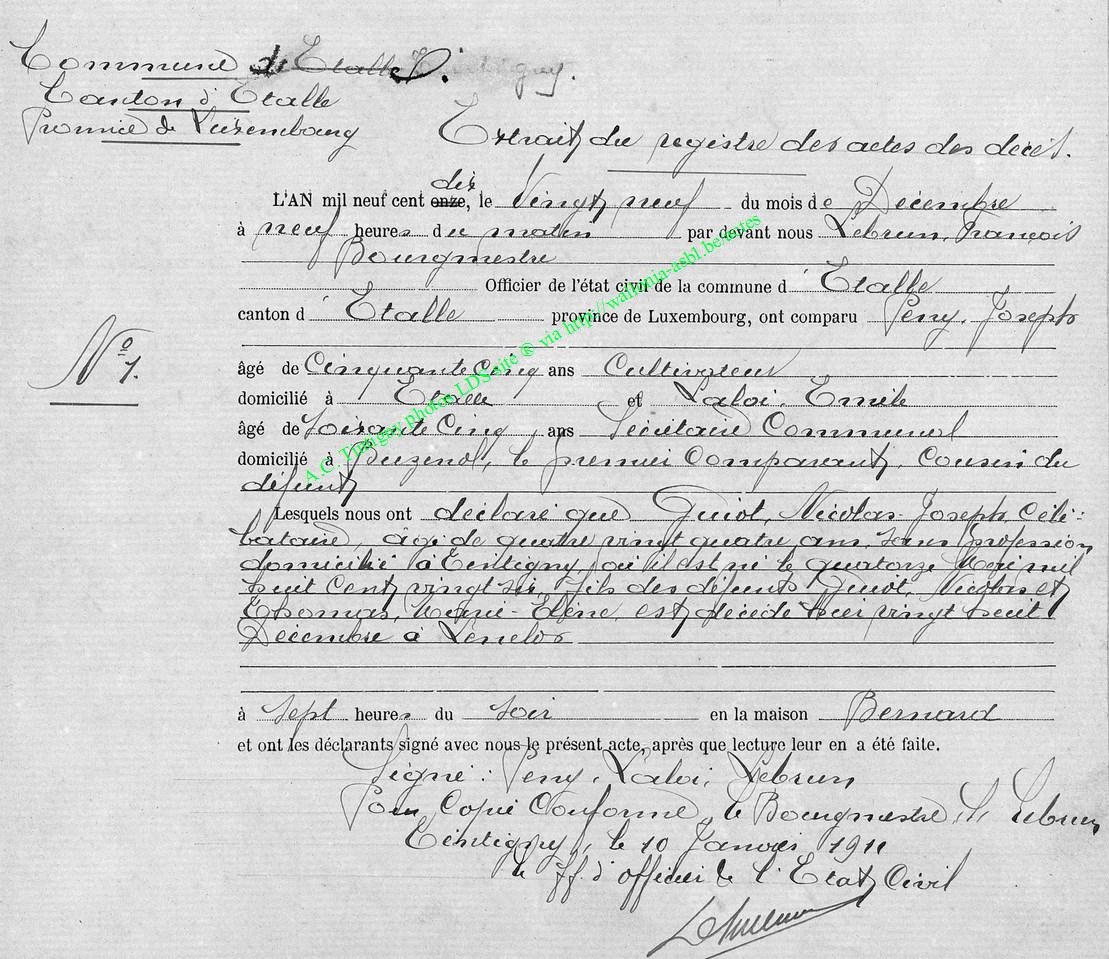 Commune de Etalle Tintigny.
Canton d'Etalle
Province de Luxembourg
Extrait du registre des actes des décès.
L'AN mil neuf cent onze, dix le Vingt neuf du mois de Décembre
à neuf heures du matin par devant nous Lebrun, François
Bourgmestre
Officier de l'état civil de la commune d' Etalle
canton d' Etalle province de Luxembourg, ont comparu Peny, Joseph
N° 1.
âgé de Cinquante Cinq ans Cultivateur
domicilié à Etalle et Laloi, Emile
âgé de Soixante Cinq ans Secrétaire Communal
domicilié à Buzenol, le premier Comparant, Cousin du
défunt
Lesquels nous ont déclaré que Guiot, Nicolas-Joseph, Céli-
bataire, âgé de quatre vingt quatre ans, sans profession
domicilié à Tintigny, où il est né le quatorze Mai mil
huit Cent vingt six, fils des défunts Guiot, Nicolas et
Thomas, Marie-Elène, est décédé hier vingt huit
Décembre à
à sept heures du soir en la maison Bernard
et ont les déclarants signé avec nous le présent acte, après que lecture leur en a été faite.
Signé : Peny, Laloi, Lebrun
Pour Copie Conforme, le Bourgmestre, Lebrun
Tintigny, le 10 Janvier 1911
le ff. d'officier de l'Etat Civil
A.C. Tintigny photos LDS site ® via http://wallonia-asbl.be/textes